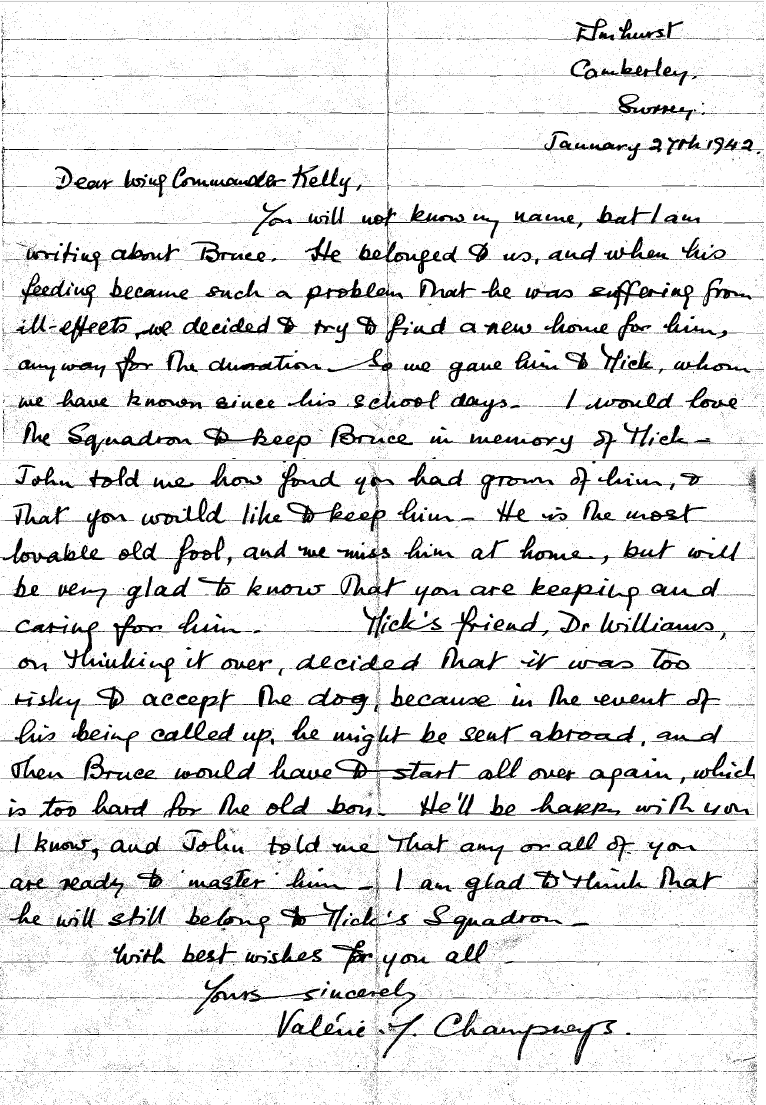 Elmhurst
Camberley.
Surrey.
January 27th 1942.
Dear Wing Commander Kelly,
You will not know my name, but I am
writing about Bruce. He belonged to us, and when his
feeding became such a problem that he was suffering from
ill-effects, we decided to try to find a new home for him,
anyway for the duration. So we gave him to Mick, whom
we have known since his school days. I would love
the Squadron to keep Bruce in memory of Mick –
John told me how fond you had grown of him, &
that you would like to keep him – He is the most
lovable old fool, and we miss him at home, but will
be very glad to know that you are keeping and
caring for him. Mick's friend, Dr Williams,
on thinking it over, decided that it was too
risky to accept the dog, because in the event of
his being called up, he might be sent abroad, and
then Bruce would have to start all over again, which
is too hard for the old boy. He'll be happy with you
I know, and John told me that any or all of you
are ready to 'master' him – I am glad to think that
he will still belong to Mick's Squadron –
With best wishes for you all –
Yours sincerely
Valérie . Champneys.